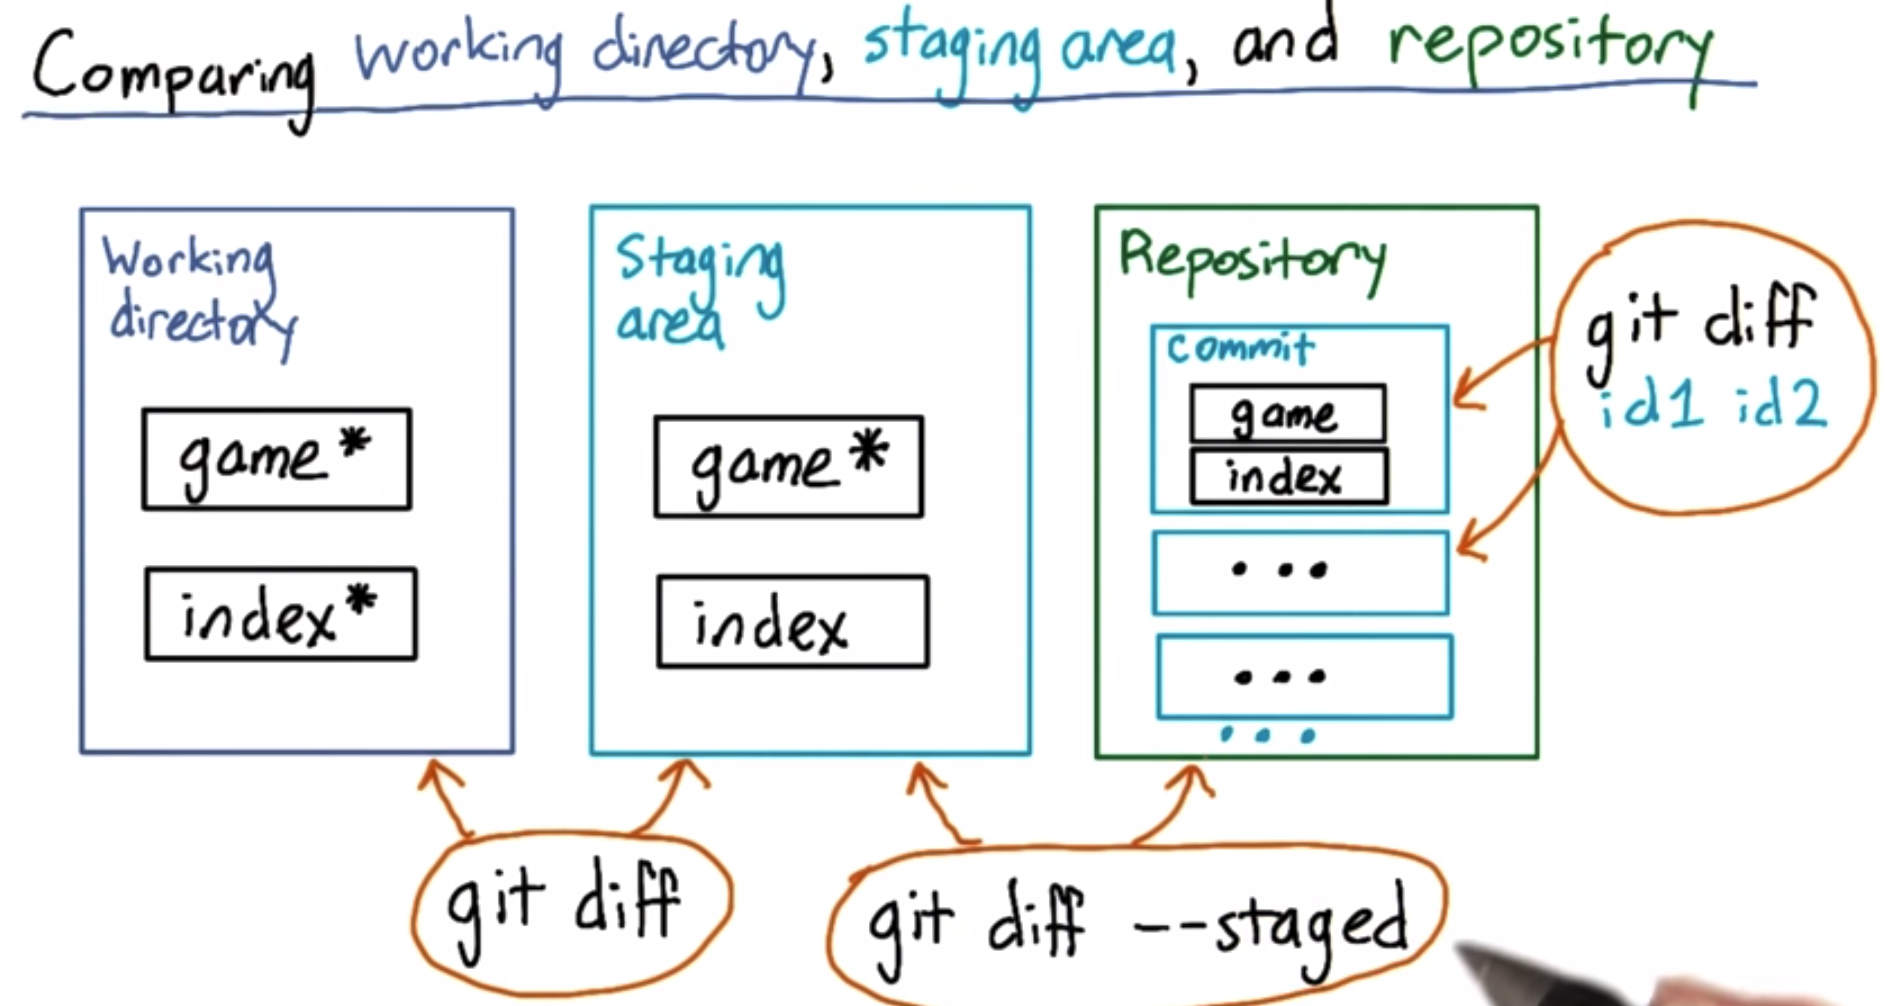 Comparing working directory, staging area, and repository
Working
directory
game*
index*
Staging
area
game*
index
Repository
commit
game
index
...
...
...
git diff
id1 id2
git diff
git diff --staged